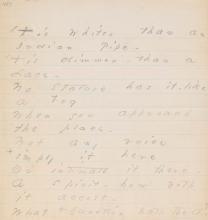 'T is whiter than an
Indian Pipe -
'T is dimmer than a
Lace -
No stature has it, like
a Fog
When you approach
the place -
Not any voice
imply it here
Or intimate it there -
A spirit - how doth
it accost -
What